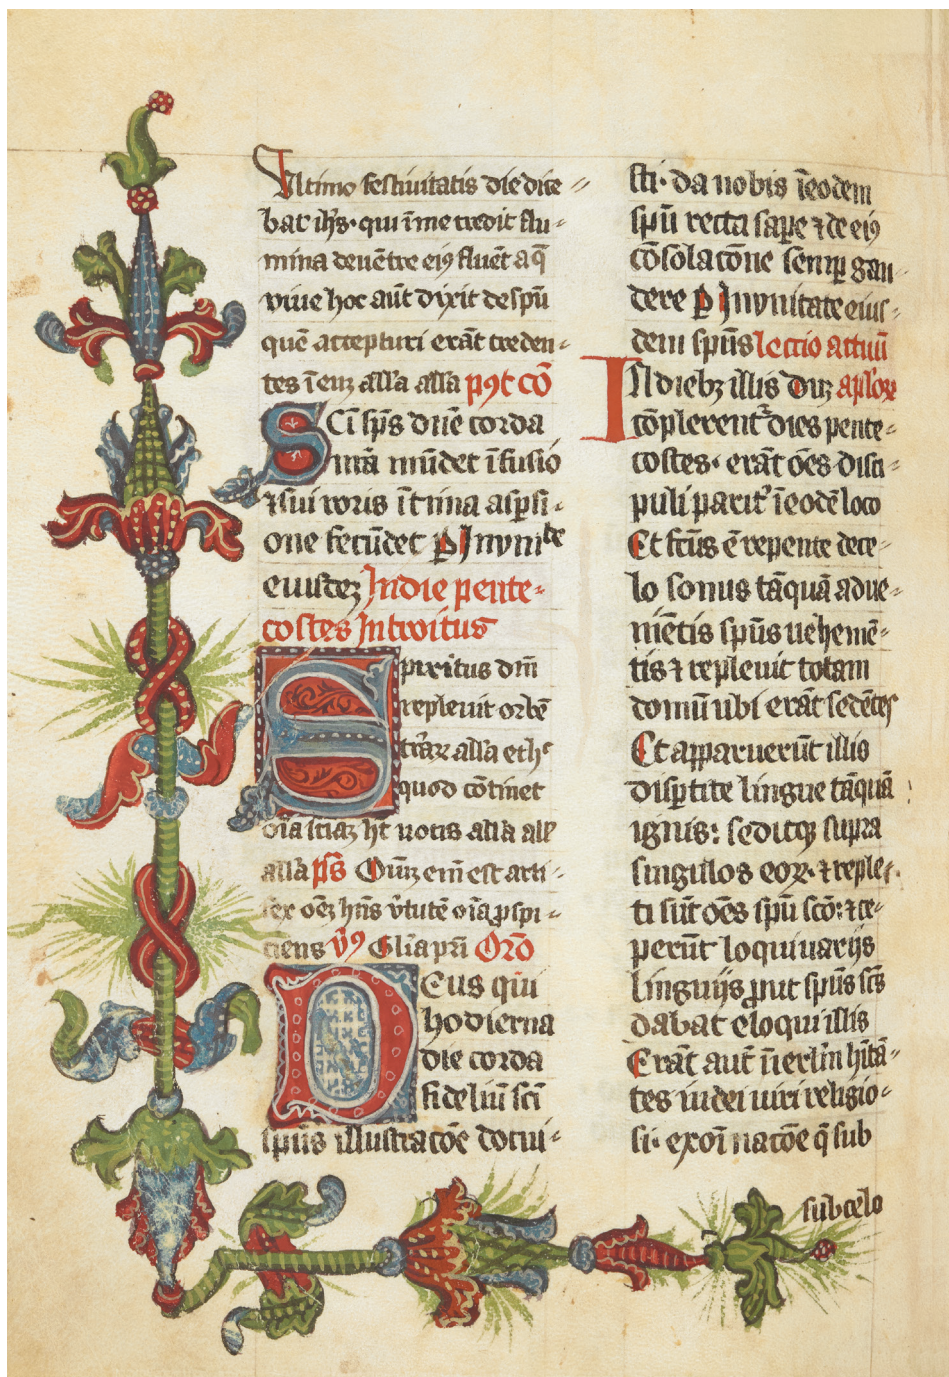 Ultimo festiuitatis die dice⸗
bat ih̄s· qui ī me credit flu⸗
mina de uētre ei⁹ fluēt aq̄
viue hoc aūt dixit de spū
quē accepturi erāt creden⸗
tes ī euʒ all'a all'a p⁹t cō
SCī sp̄s dn̄e corda
nr̄a mūdet īfusio
⁊ sui roris ītima asp̄si⸗
one fecūdet ꝑ In vnitᵗᵉ
eiusdeʒ In die pente⸗
costes Introitus
Spiritus dn̄i
repleuit orbē
tr̄aꝝ all'a et hᶜ
quod cōtinet
oīa sciāʒ hꝫ uocis all'a all'
all'a p̄s Oīuʒ em̄ est arti⸗
fex oēʒ hn̄s v̄tutē oīa ꝓspi⸗
ciens v̄⁹ Gl'ia pr̄i Orō
Deus qui
hodierna
die corda
fideliū scī
sp̄us illustracōe docui⸗
sti· da nobis ī eodem
spū recta sape ⁊ de ei⁹
cōsolacōne semꝑ gau⸗
dere ꝑ In vnitate eius⸗
dem sp̄us lectio actuū
IN diebʒ illis Duʒ apl'oꝝ
cōplerent᷑ dies pente⸗
costes· erāt oēs disci⸗
puli parit᷑ ī eodē loco
Et fc̄us ē repente de ce⸗
lo sonus tāquā adue⸗
niētis sp̄us uehemē⸗
tis ⁊ repleuit totam
domū ubi erāt sedētes
Et apparuerūt illis
disꝑtite lingue tāquā
ignis: seditqꝫ supra
singulos eoꝝ· ⁊ reple⸗
ti sūt oēs spū scō: ⁊ ce⸗
perūt loqui uarijs
linguijs ꝓut sp̄us sc̄s
dabat eloqui illis
Erāt aut̄ ī ierl̄m hītā⸗
tes iudei uiri religio⸗
si· ex oī nacōe q̄ sub
sub celo